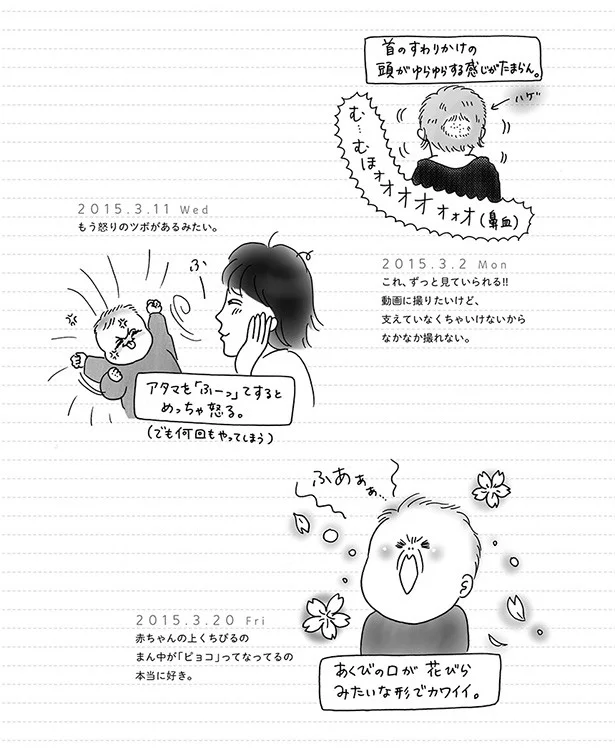 首のすわりかけの
頭がゆらゆらする感じがたまらん。
ハゲ
む…むほォォォォォォォ(鼻血)
2015.3.2 Mon
これ、ずっと見ていられる!!
動画に撮りたいけど、
支えていなくちゃいけないから
なかなか撮れない。
2015.3.11 Wed
もう怒りのツボがあるみたい。
ふー
アタマを「ふーっ」てすると
めっちゃ怒る。
(でも何回もやってしまう)
ふあぁぁ…
2015.3.20 Fri
赤ちゃんの上くちびるの
まん中が「ピョコ」ってなってるの
本当に好き。
あくびの口が花びら
みたいな形でカワイイ。